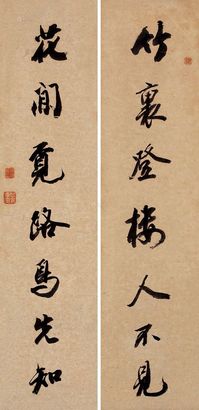 竹裏登樓人不見
花間覓路鳥先知